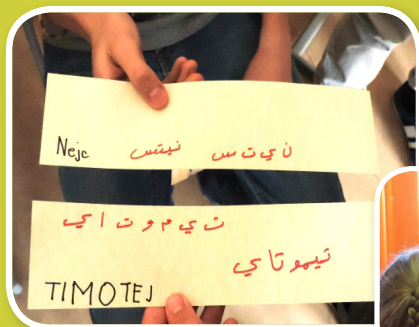 Nejc نيتس ن ي ت س
ت ي م و ت ا ي
تيموتاي
TIMOTEJ